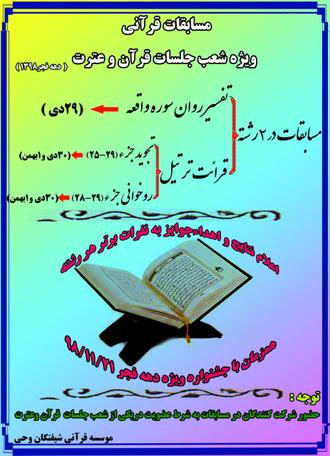 مسابقات قرآنی
ویژه شعب جلسات قرآن و عترت
( دهه فجر۱۳۹۸)
مسابقات در ۲ رشته
تفسیر روان سوره واقعه (۲۹دی )
قرائت ترتیل
تجوید جزء (۲۹-۲۵) (۳۰دی و۱بهمن)
روخوانی جزء (۲۹-۲۸) (۳۰دی و۱بهمن)
اعلام نتایج و اهداءجوایز به نفرات برتر هر رشته
همزمان با جشنواره ویژه دهه فجر ۹۸/۱۱/۲۱
توجه :
حضور شرکت کنندگان در مسابقات به شرط عضویت دریکی از شعب جلسات قرآن وعترت
موسسه قرآنی شیفتگان وحی